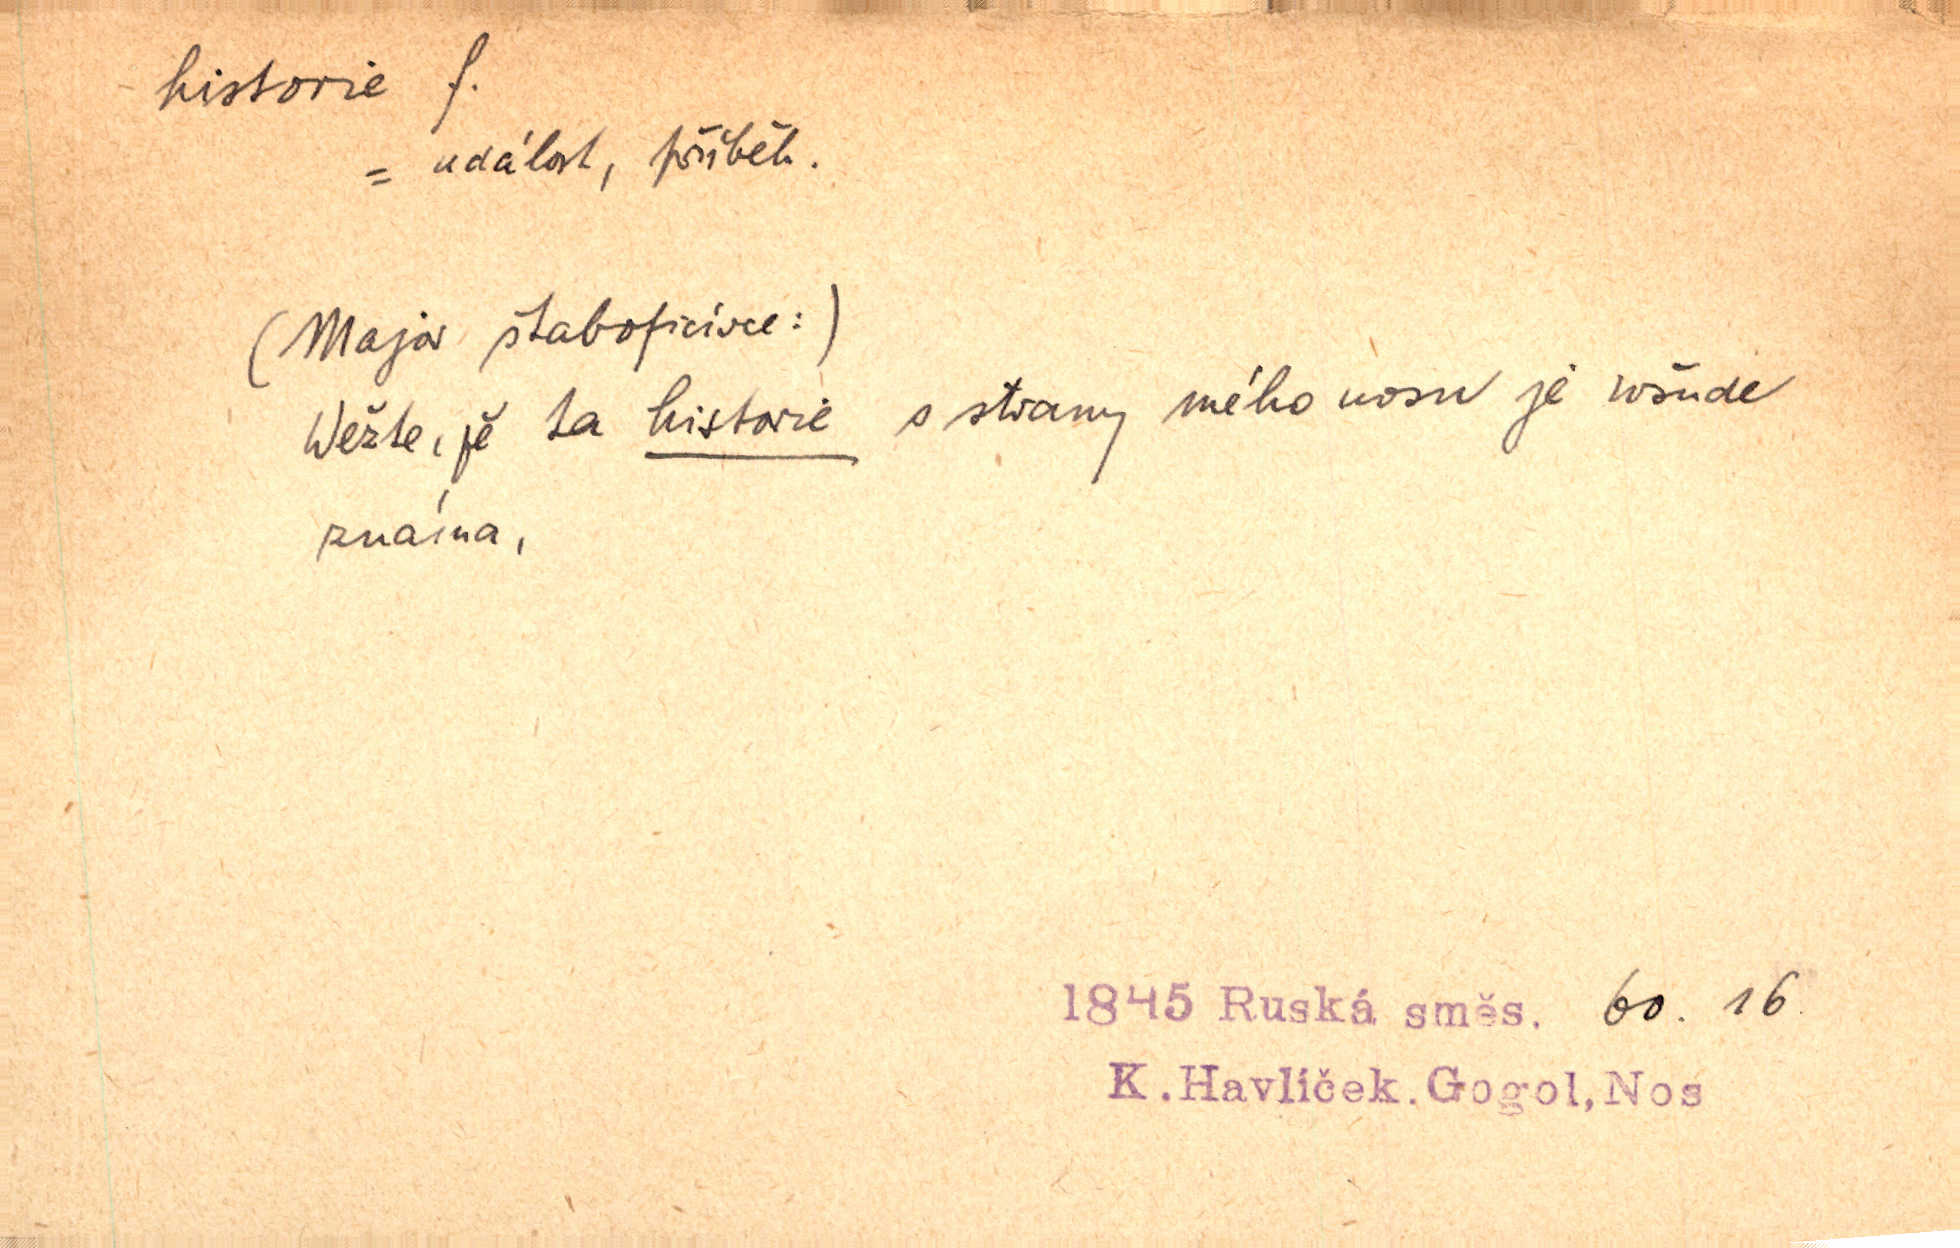 historie f.
= událost, příběh.
(Major štaboficírce:)
Wěžte, jě ta historie s strany mého nosu je wšude
známa,
1845 Ruská směs. 60. 16.
K.Havlíček.Gogol,Nos